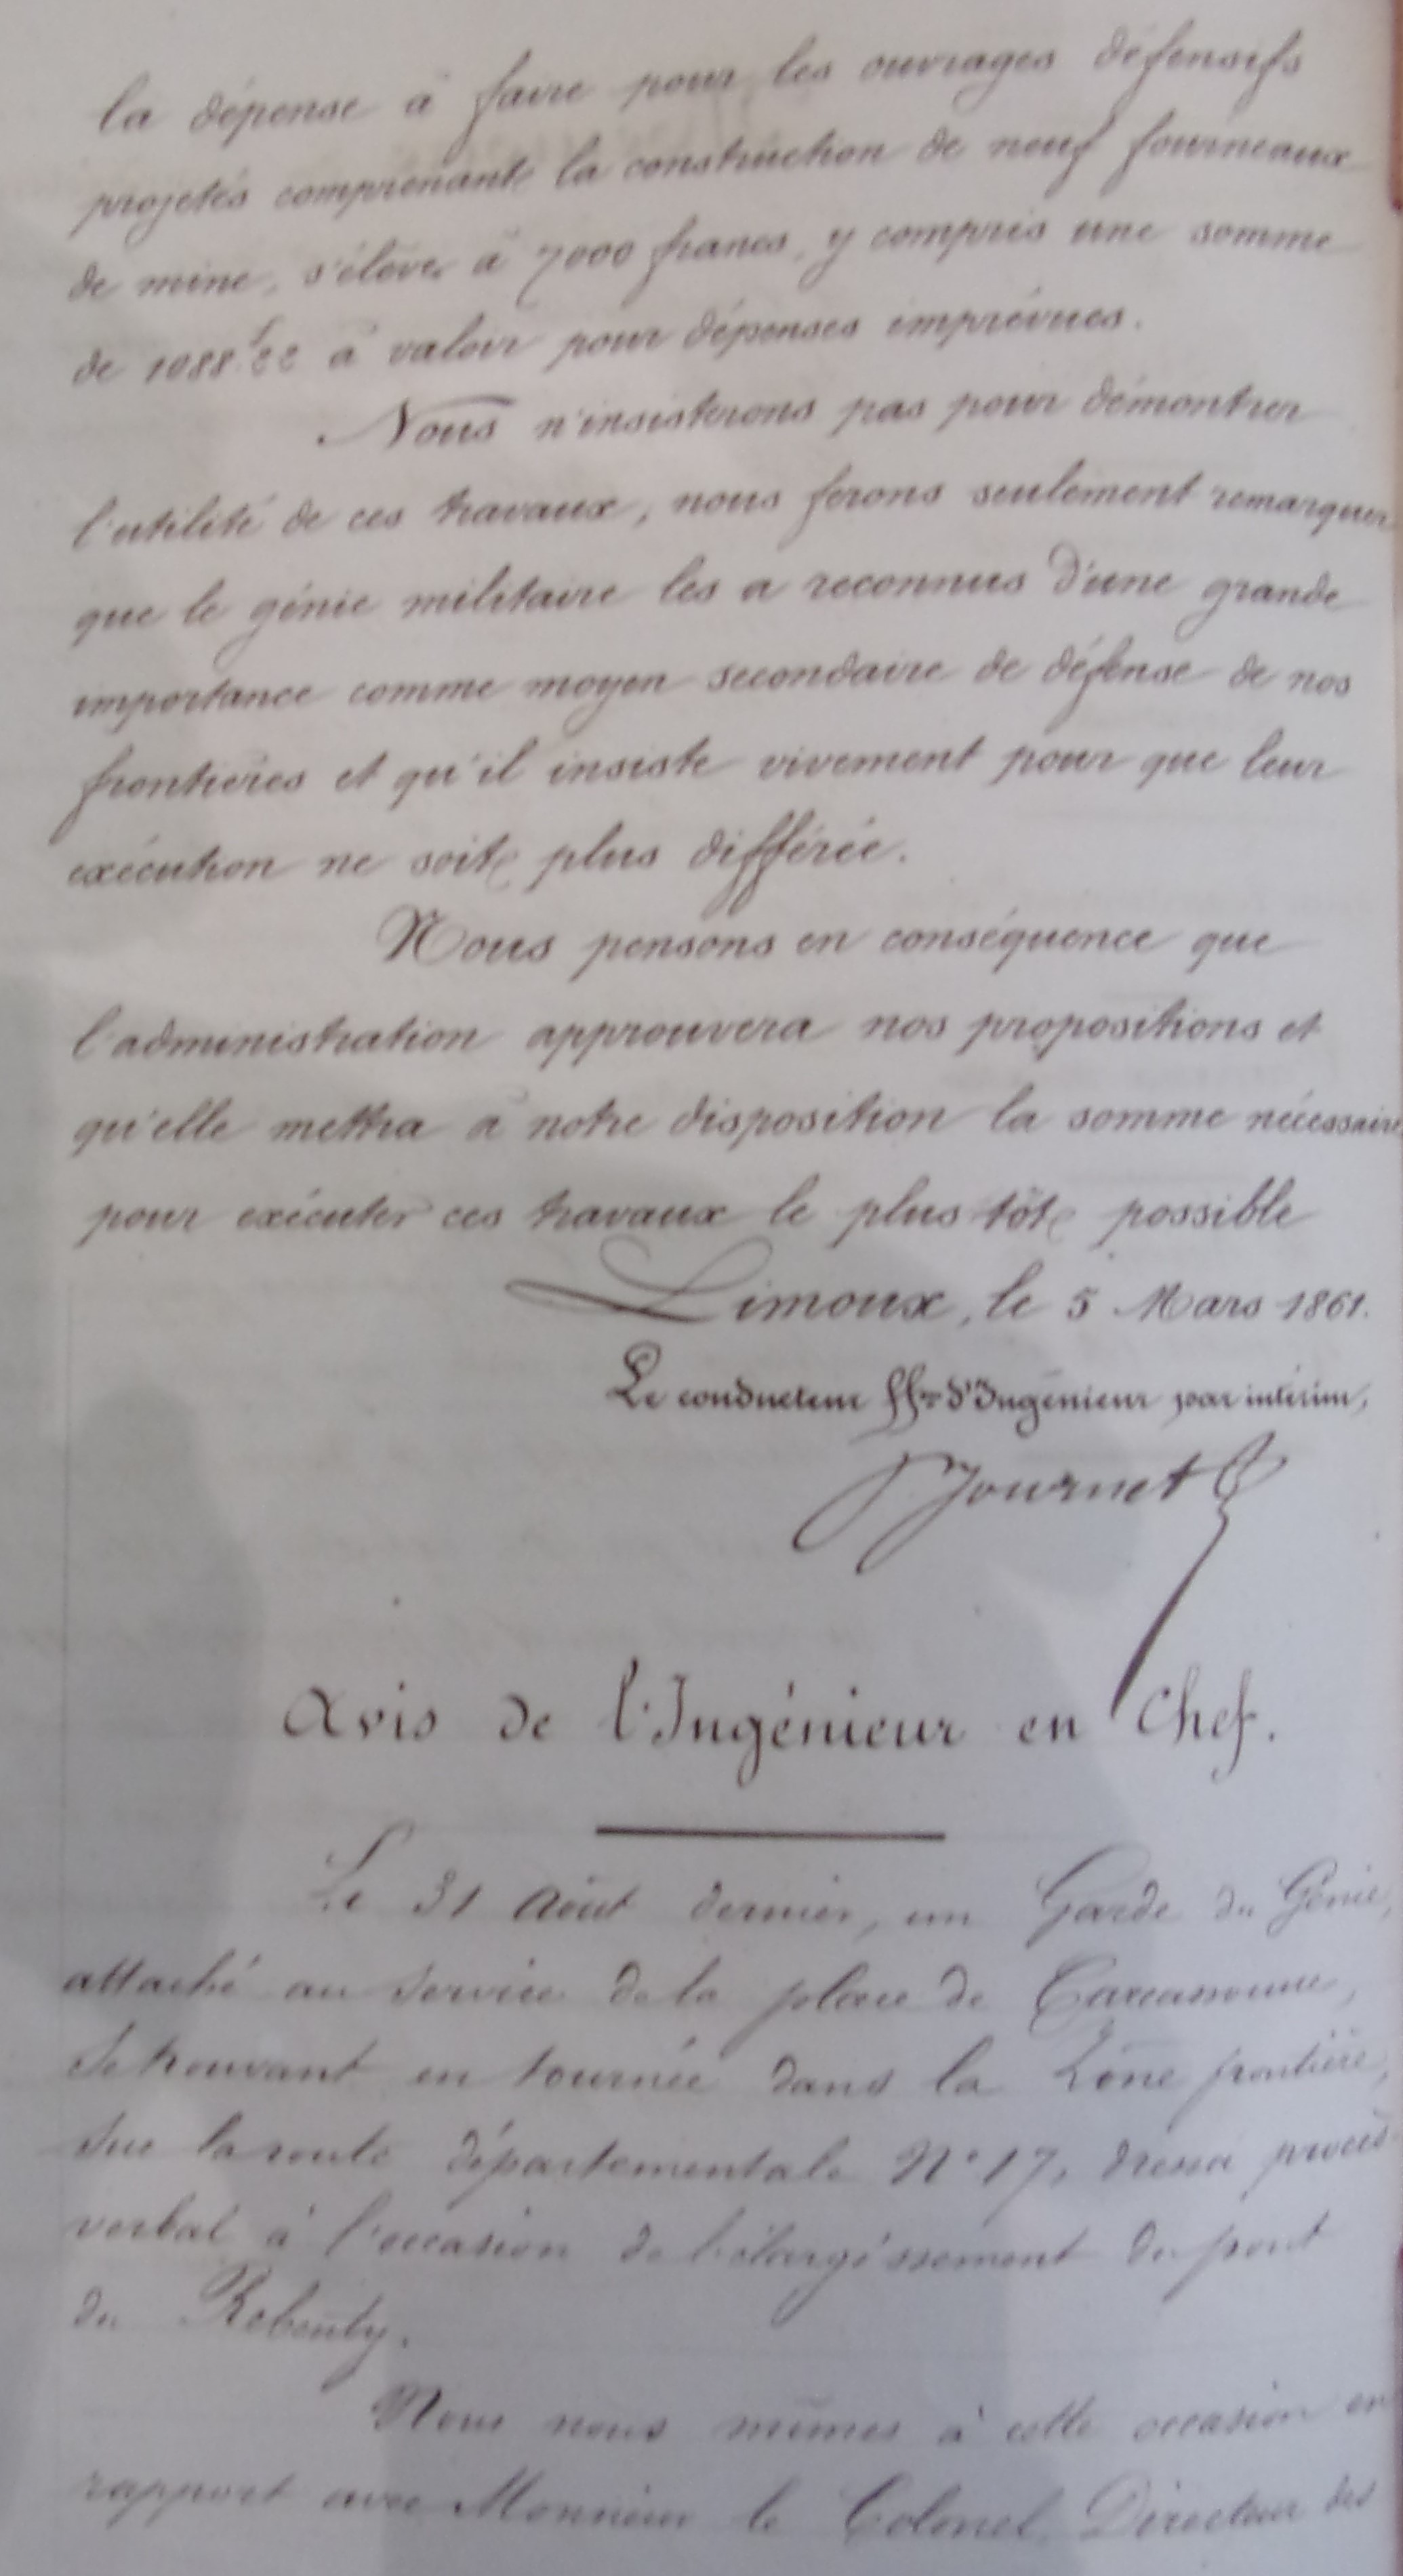 la dépense à faire pour les ouvrages défensifs
projetés comprenant la construction de neuf fourneaux
de mine, s'élève à 7000 francs, y compris une somme
de 1088f.22 à valoir pour dépenses imprévues.
Nous n'insisterons pas pour démontrer
l'utilité de ces travaux, nous ferons seulement remarquer
que le génie militaire les a reconnus d'une grande
importance comme moyen secondaire de défense de nos
frontières et qu'il insiste vivement pour que leur
exécution ne soit plus différée.
Nous pensons en conséquence que
l'administration approuvera nos propositions et
qu'elle mettra à notre disposition la somme nécessaire
pour exécuter ces travaux le plus tôt possible
Limoux, le 5 Mars 1861.
Le conducteur ffons d'Ingénieur par intérim,
Journet
Avis de l'Ingénieur en Chef.
Le 31 Août dernier, un Garde du Génie,
attaché au service de la place de Carcassonne,
se trouvant en tournée dans la Zône frontière,
sur la route départementale N° 17, dressa procès-
verbal à l'occasion de l'élargissement du pont
du Rebenty.
Nous nous mîmes à cette occasion en
rapport avec Monsieur le Colonel Directeur des